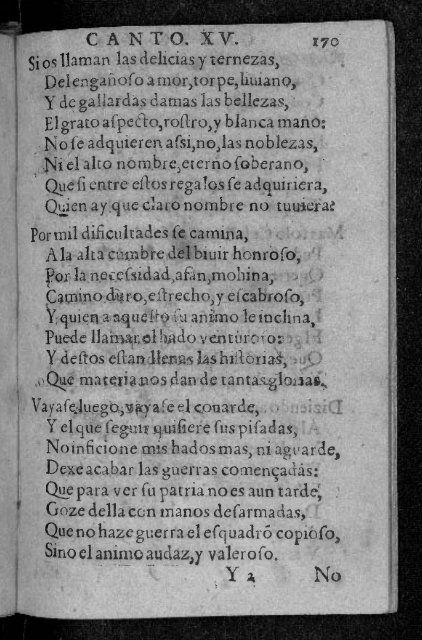 CANTO. XV. 170
Si os llaman las delicias y ternezas,
Del engañoso amor, torpe, liuiano,
Y de gallardas damas las bellezas,
El grato aspecto, rostro, y blanca mano:
No se adquieren assi, no, las noblezas,
Ni el alto nombre, eterno soberano,
Que si entre estos regalos se adquiriera,
Quien ay que claro nombre no tuuiera?
Por mil dificultades se camina,
A la alta cumbre del biuir honroso,
Por la necessidad, afan, mohina,
Camino duro, estrecho, y escabroso,
Y quien a aquesto su animo le inclina,
Puede llamar el hado venturoso:
Y destos estan llenas las historias,
Que materia nos dan de tantas glorias.
Vayase luego, vayase el couarde,
Y el que seguir quisiere sus pisadas,
No inficione mis hados mas, ni aguarde,
Dexe acabar las guerras començadas:
Que para ver su patria no es aun tarde,
Goze della con manos desarmadas,
Que no haze guerra el esquadrō copioso,
Sino el animo audaz, y valeroso.
Y 2 No